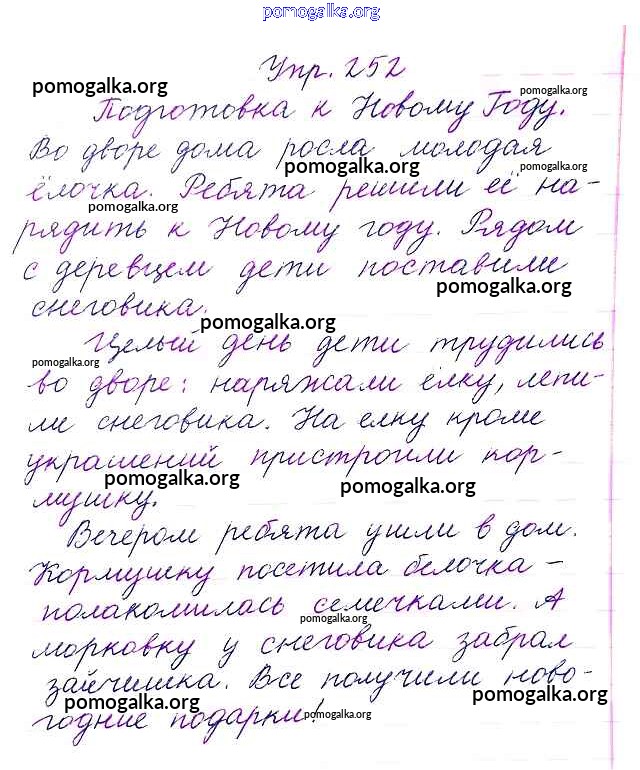 pomogalka.org
Упр. 252
pomogalka.org pomogalka.org
Подготовка к Новому Году.
Во дворе дома росла молодая
pomogalka.org pomogalka.org
ёлочка. Ребята решили её на-
pomogalka.org
рядить к Новому году. Рядом
с деревцем дети поставили
pomogalka.org
снеговика.
pomogalka.org
Целый день дети трудились
pomogalka.org
во дворе: наряжали ёлку, лепи-
ли снеговика. На елку кроме
украшений пристроили кор-
pomogalka.org pomogalka.org
мушку.
Вечером ребята ушли в дом.
Кормушку посетила белочка -
полакомилась семечками. А
pomogalka.org
морковку у снеговика забрал
зайчишка. Все получили ново-
pomogalka.org pomogalka.org
годние подарки!
pomogalka.org